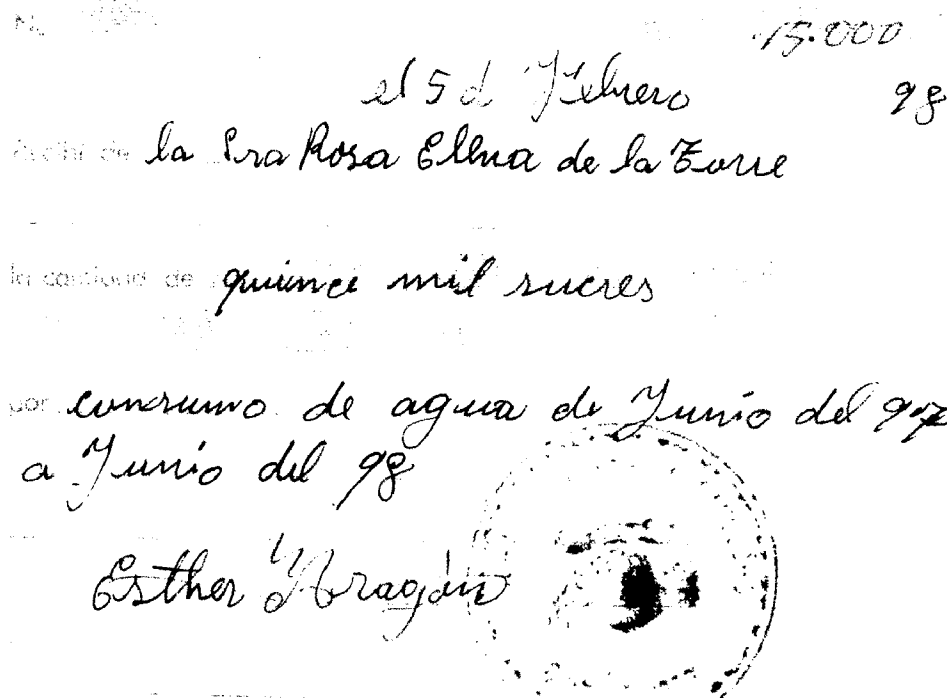 No. 15.000
el 5 d Febrero 98
Recibí de la Sra Rosa Ellna de la Torre
la cantidad de quince mil sucres
por consumo de agua de Junio del 97
a Junio del 98
Esther Aragón